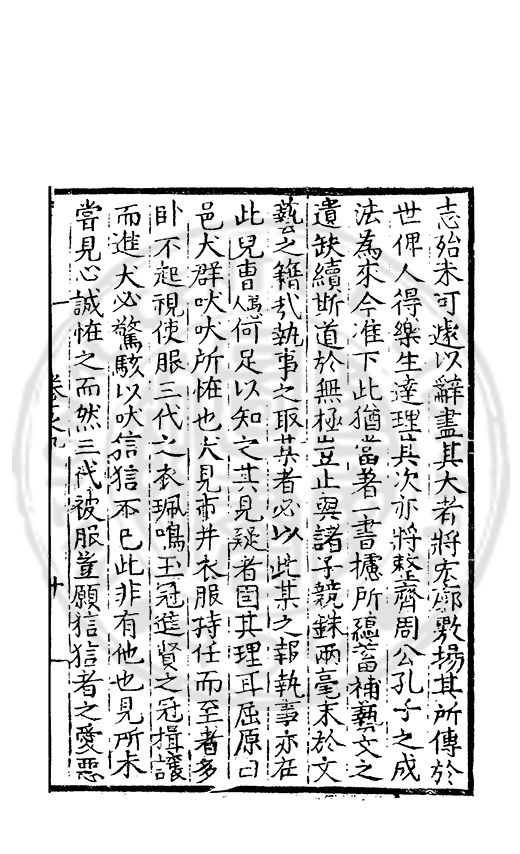 志殆未可遽以辭盡其大者將宏廓敷揚其所傳於
世俾人得樂生達理其次亦將整齊周公孔子之成
法為來今准下此猶當著一書攄所蘊畜補藝文之
遺缺續斯道於無極豈止與諸子競銖兩毫末於文
藝之籍哉執事之取某者必以此某之報執事亦在
此兒曹偶何足以知之其見疑者固其理耳屈原曰
邑犬群吠吠所恠也犬見市井衣服持任而至者多
卧不起視使服三代之衣珮鳴玉冠進賢之冠揖讓
而進犬必驚駭以吠狺狺不已此非有他也見所未
嘗見心誠恠之而然三代被服豈願狺狺者之愛惡
卷之九
十